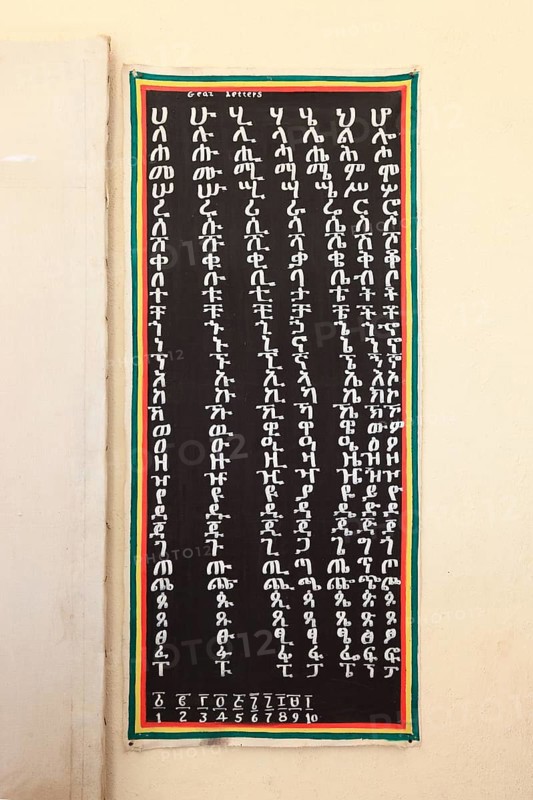 Geaz Letters
ሀ ሁ ሂ ሃ ሄ ህ ሆ
ለ ሉ ሊ ላ ሌ ል ሎ
ሐ ሑ ሒ ሓ ሔ ሕ ሖ
መ ሙ ሚ ማ ሜ ም ሞ
ሠ ሡ ሢ ሣ ሤ ሥ ሦ
ረ ሩ ሪ ራ ሬ ር ሮ
ሰ ሱ ሲ ሳ ሴ ስ ሶ
ሸ ሹ ሺ ሻ ሼ ሽ ሾ
ቀ ቁ ቂ ቃ ቄ ቅ ቆ
በ ቡ ቢ ባ ቤ ብ ቦ
ተ ቱ ቲ ታ ቴ ት ቶ
ቸ ቹ ቺ ቻ ቼ ች ቾ
ኀ ኁ ኂ ኃ ኄ ኅ ኆ
ነ ኑ ኒ ና ኔ ን ኖ
ኘ ኙ ኚ ኛ ኜ ኝ ኞ
አ ኡ ኢ ኣ ኤ እ ኦ
ከ ኩ ኪ ካ ኬ ክ ኮ
ኸ ኹ ኺ ኻ ኼ ኽ ኾ
ወ ዉ ዊ ዋ ዌ ው ዎ
ዐ ዑ ዒ ዓ ዔ ዕ ዖ
ዘ ዙ ዚ ዛ ዜ ዝ ዞ
ዠ ዡ ዢ ዣ ዤ ዥ ዦ
የ ዩ ዪ ያ ዬ ይ ዮ
ደ ዱ ዲ ዳ ዴ ድ ዶ
ጀ ጁ ጂ ጃ ጄ ጅ ጆ
ገ ጉ ጊ ጋ ጌ ግ ጎ
ጠ ጡ ጢ ጣ ጤ ጥ ጦ
ጨ ጩ ጪ ጫ ጬ ጭ ጮ
ጰ ጱ ጲ ጳ ጴ ጵ ጶ
ጸ ጹ ጺ ጻ ጼ ጽ ጾ
ፀ ፁ ፂ ፃ ፄ ፅ ፆ
ፈ ፉ ፊ ፋ ፌ ፍ ፎ
ፐ ፑ ፒ ፓ ፔ ፕ ፖ
፩ ፪ ፫ ፬ ፭ ፮ ፯ ፰ ፱ ፲
1 2 3 4 5 6 7 8 9 10